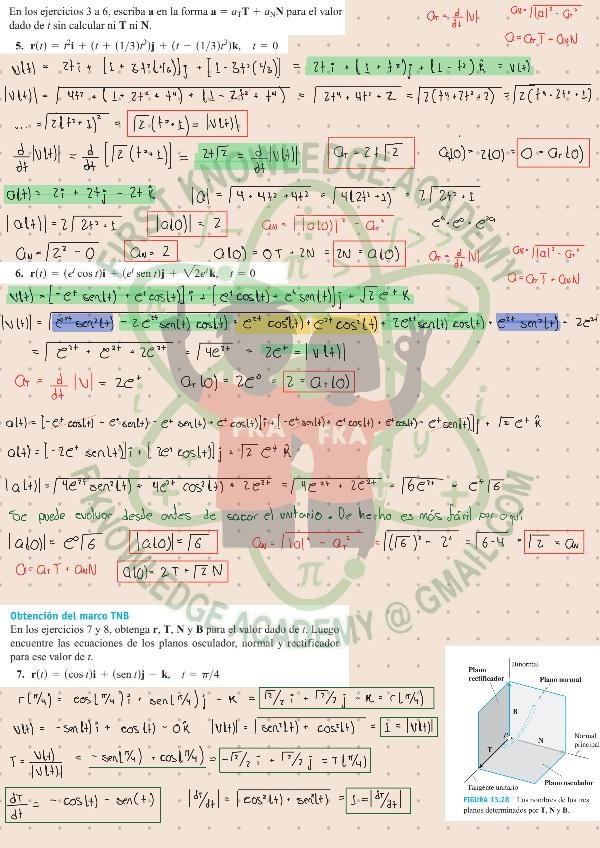 En los ejercicios 3 a 6, escriba a en la forma a = a_T T + a_N N para el valor
dado de t sin calcular ni T ni N.
a_T = d/dt |v|
a_N = √(|a|² - a_T²)
a = a_T T + a_N N
5. r(t) = t²i + (t + (1/3)t³)j + (t − (1/3)t³)k, t = 0
v(t) = 2ti + [1 + 3t²(1/3)]j + [1 - 3t²(1/3)] = 2ti + (1 + t²)j + (1 - t²)k̂ = v(t)
|v(t)| = √(4t² + (1 + 2t² + t⁴) + (1 - 2t² + t⁴)) = √(2t⁴ + 4t² + 2) = √(2(t⁴ + 2t² + 2)) = √(2(t⁴ + 2t² + 1))
... = √(2(t² + 1)²) = √2(t² + 1) = |v(t)|
d/dt |v(t)| = d/dt [√2(t² + 1)] = 2t√2 = d/dt |v(t)| a_T = 2t√2 a_T(0) = 2(0) = 0 = a_T(0)
a(t) = 2i + 2tj - 2tk̂ |a| = √(4 + 4t² + 4t²) = √(4(2t² + 1)) = 2√(2t² + 1)
|a(t)| = 2√(2t² + 1) |a(0)| = 2 a_N = √(|a(t)|² - a_T²)
a_N = √(2² - 0) a_N = 2 a(0) = 0T + 2N = 2N = a(0)
a_T = d/dt |v|
a_N = √(|a|² - a_T²)
a = a_T T + a_N N
6. r(t) = (eᵗ cos t)i + (eᵗ sen t)j + √2eᵗk, t = 0
v(t) = [-eᵗ sen(t) + eᵗ cos(t)]i + [eᵗ cos(t) + eᵗ sen(t)]j + √2 eᵗ k
|v(t)| = √(e²ᵗ sen²(t) - 2e²ᵗ sen(t) cos(t) + e²ᵗ cos²(t) + e²ᵗ cos²(t) + 2e²ᵗ sen(t) cos(t) + e²ᵗ sen²(t) + 2e²ᵗ
= √(e²ᵗ + e²ᵗ + 2e²ᵗ) = √(4e²ᵗ) = 2eᵗ = |v(t)|
a_T = d/dt |v| = 2eᵗ a_T(0) = 2e⁰ = 2 = a_T(0)
a(t) = [-eᵗ cos(t) - eᵗ sen(t) - eᵗ sen(t) + eᵗ cos(t)]i + [-eᵗ sen(t) + eᵗ cos(t) + eᵗ cos(t) + eᵗ sen(t)]j + √2 eᵗ k̂
a(t) = [-2eᵗ sen(t)]i + [2eᵗ cos(t)]j + √2 eᵗ k̂
|a(t)| = √(4e²ᵗ sen²(t) + 4e²ᵗ cos²(t) + 2e²ᵗ) = √(4e²ᵗ + 2e²ᵗ) = √(6e²ᵗ) = eᵗ√6
Se puede evaluar desde antes de sacar el unitario. De hecho es más fácil por aquí
|a(0)| = e⁰√6 |a(0)| = √6 a_N = √(|a|² - a_T²) = √((√6)² - 2²) = √(6-4) = √2 = a_N
a = a_T T + a_N N a(0) = 2T + √2 N
Obtención del marco TNB
En los ejercicios 7 y 8, obtenga r, T, N y B para el valor dado de t. Luego
encuentre las ecuaciones de los planos osculador, normal y rectificador
para ese valor de t.
7. r(t) = (cos t)i + (sen t)j − k, t = π/4
r(π/4) = cos(π/4)i + sen(π/4)j - k = √2/2 i + √2/2 j - k = r(π/4)
v(t) = -sen(t)i + cos(t) - 0k̂ |v(t)| = √(sen²(t) + cos²(t)) = 1 = |v(t)|
T = v(t)/|v(t)| = -sen(π/4) + cos(π/4) = -√2/2 i + √2/2 j = T(π/4)
dT/dt = -cos(t) - sen(t) |dT/dt| = √(cos²(t) + sen²(t)) = 1 = |dT/dt|
Plano
rectificador
Binormal
Plano normal
B
P
T
N
Normal
principal
Plano osculador
Tangente unitario
FIGURA 13.28 Los nombres de los tres
planos determinados por T, N y B.
FIRST KNOWLEDGE ACADEMY
FKA
FKA
FKNOWLEDGE ACADEMY @ GMAIL.COM